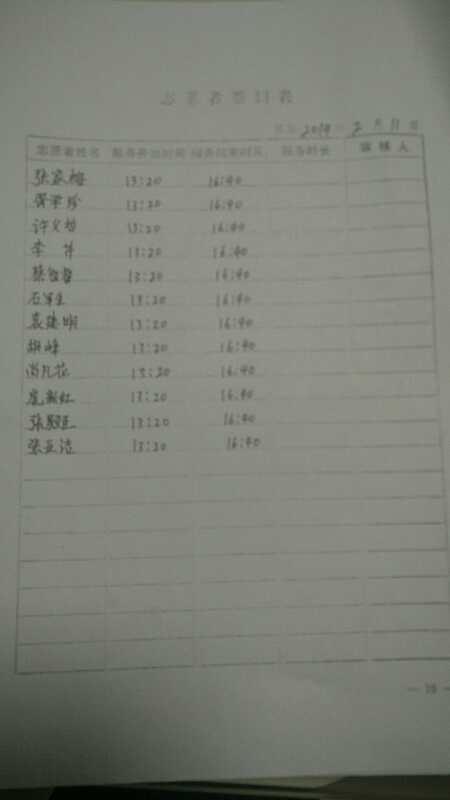 志愿者签日表
2019年2月11日
志愿者姓名 服务开始时间 服务结束时间 服务时长 审核人
张家梅 13:20 16:40
13:20 16:40
许文 13:20 16:40
李萍 13:20 16:40
13:20 16:40
石军生 13:20 16:40
袁建明 13:20 16:40
胡峰 13:20 16:40
尚凡花 13:20 16:40
红 13:20 16:40
张 13:20 16:40
张亚洁 13:20 16:40